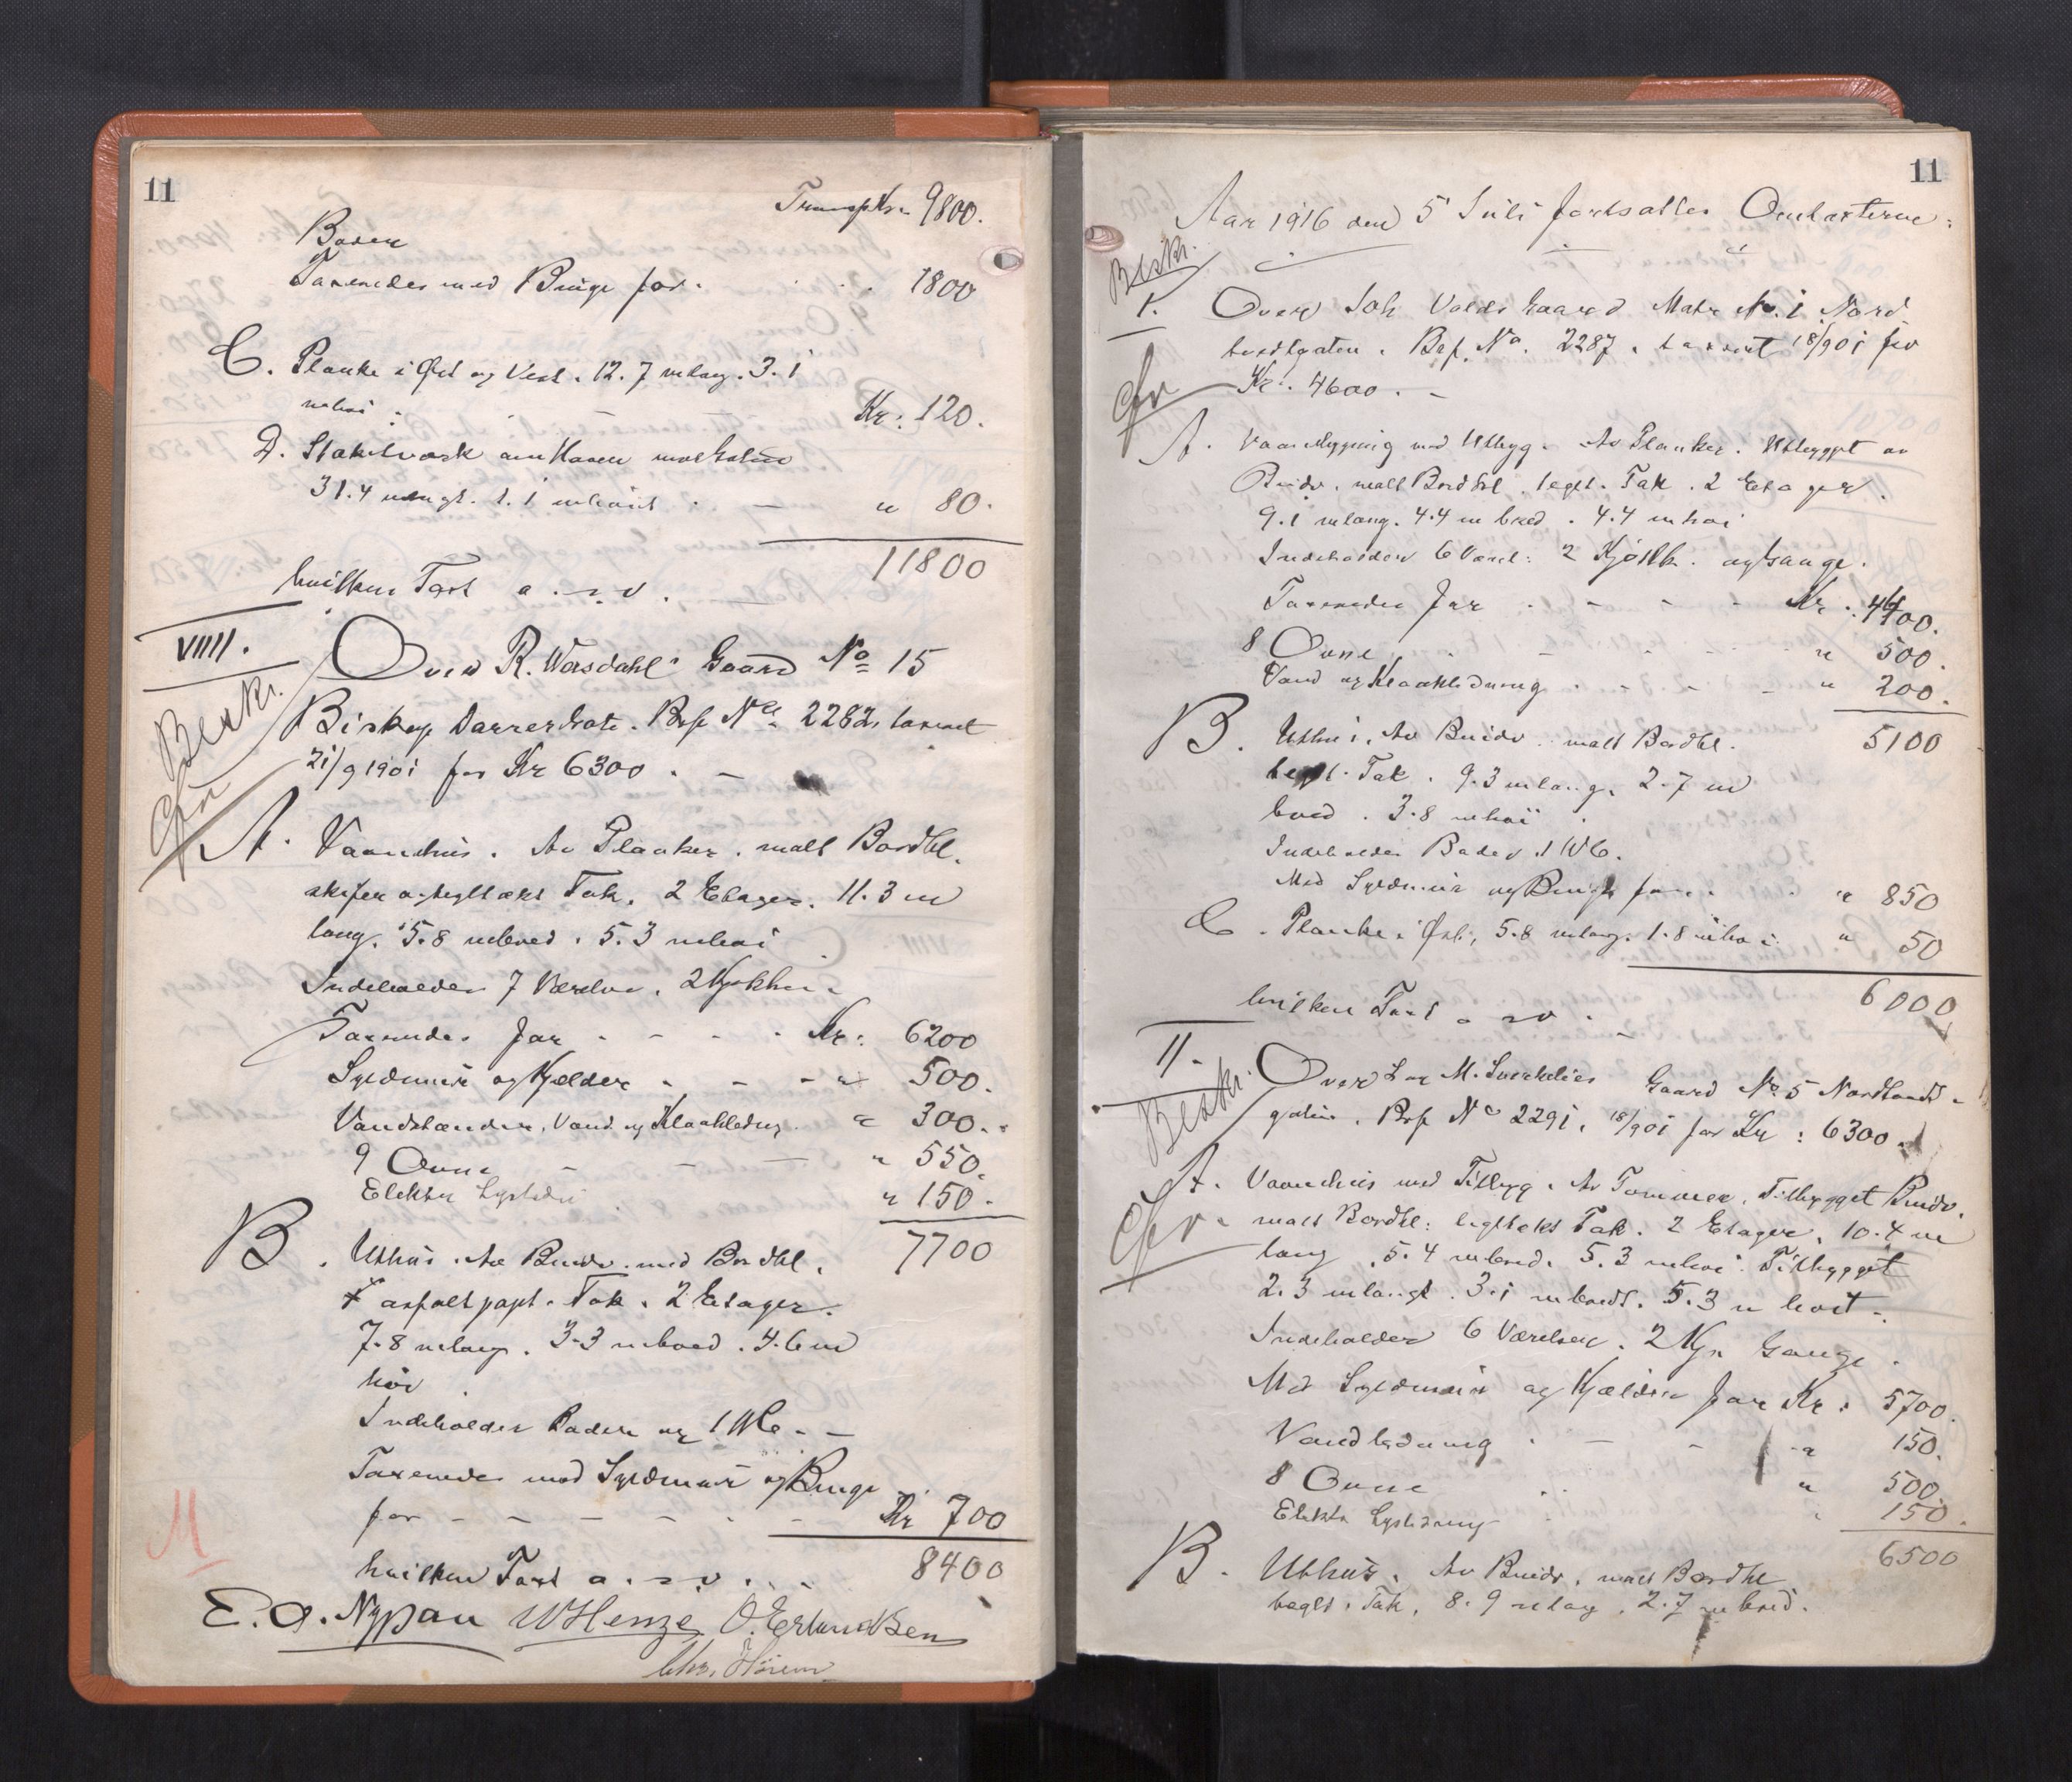 11
Transp Kr. 9800.
Boder
Taxeredes med Binge for. 1800
C. Planke i Øst og Vest. 12.7 m lang. 3.1
m høi. Kr. 120.
D. Stakitværk om Haven mod Gaten
31.4 m langt. 1.1 m høit. " 80.
11800
hvilken Taxt a. s. v.
VIIII.
Beskr.
Over R. Worsdahls Gaard No 15
Biskop Darres Gate. Brf No 2282. taxeret
21/9 1901 for Kr 6300.
A. Vaanehus. Av Planker. malt Bordkl.
skifer og teglt ækt Tak. 2 Etager. 11.3 m
lang. 5.8 m bred. 5.3 m høi
Indeholder 7 Værelse. 2 Kjøkken
Taxeredes for - - - - Kr: 6200
Syldmur og Kjælder - - - " 500.
Vandstænder, Vand og Kloakledng. " 300.
9 Ovne - - - " 550.
Elektr Lysledn " 150.
7700
B. Uthus. Av Bindv. med Bordkl.
asfaltpapt. Tak. 2 Etager.
7.8 m lang. 3.3 m bred. 4.6 m
høi
Indeholder Boder og 1 WC. -
Taxeredes med Syldmur og Binge
for - - - - - Kr 700
hvilken Taxt a. s. v. 8400
M
E. A. Nypan W Henze O. Erlandsen
Chr.
11
Aar 1916 den 5 Juli fortsattes Omtaxterne:
Beskr.
1. Over Joh Volds Gaard Matr No. 1 Nord
tvedtgaten. Brf. No. 2287. taxeret 18/9 01 for
Kr. 4600. -
A. Vaanebygning med Utbyg. Av Planker. Utbygget av
Bindv. malt Bordkl. teglt. Tak. 2 Etager.
9.1 m lang. 4.4 m bred. 4.4 m høi
Indeholder 6 Værel: 2 Kjøkk. og Gange.
Taxeredes for - - - Kr. 4400.
8 Ovne - - " 500.
Vand og Kloakledning - - - " 200.
5100
B. Uthus. Av Bindv. malt Bordkl.
teglt. Tak. 9.3 m lang. 2.7 m
bred. 3.8 m høi
Indeholder Boder. 1 WC.
Med Syldmur og Binge for " 850
C. Planke i Øst, 5.8 m lang. 1.8 m høi. " 50
6000
hvilken Taxt a. s. v.
II.
Beskr.
Over Gaard No 5
gaten. Brf No 2291. 18/9 01 for Kr: 6300.
A. Vaanehus med Tilbyg. Av Tømmer. Tilbygget Bindv.
malt Bordkl: teglt ækt Tak. 2 Etager. 10.4 m
lang. 5.4 m bred. 5.3 m høi. Tilbygget
2.3 m langt. 3.1 m bredt. 5.3 m høit.
Indeholder 6 Værelser. 2 Kjø. Gange.
Med Syldmur og Kjælder for Kr: 5700.
Vandledning - - - " 150.
8 Ovne " 500.
Elektr Lysledning 150.
6500
B. Uthus. Av Bindv. malt Bordkl
teglt. Tak. 8.9 m lang. 2.7 m bred.